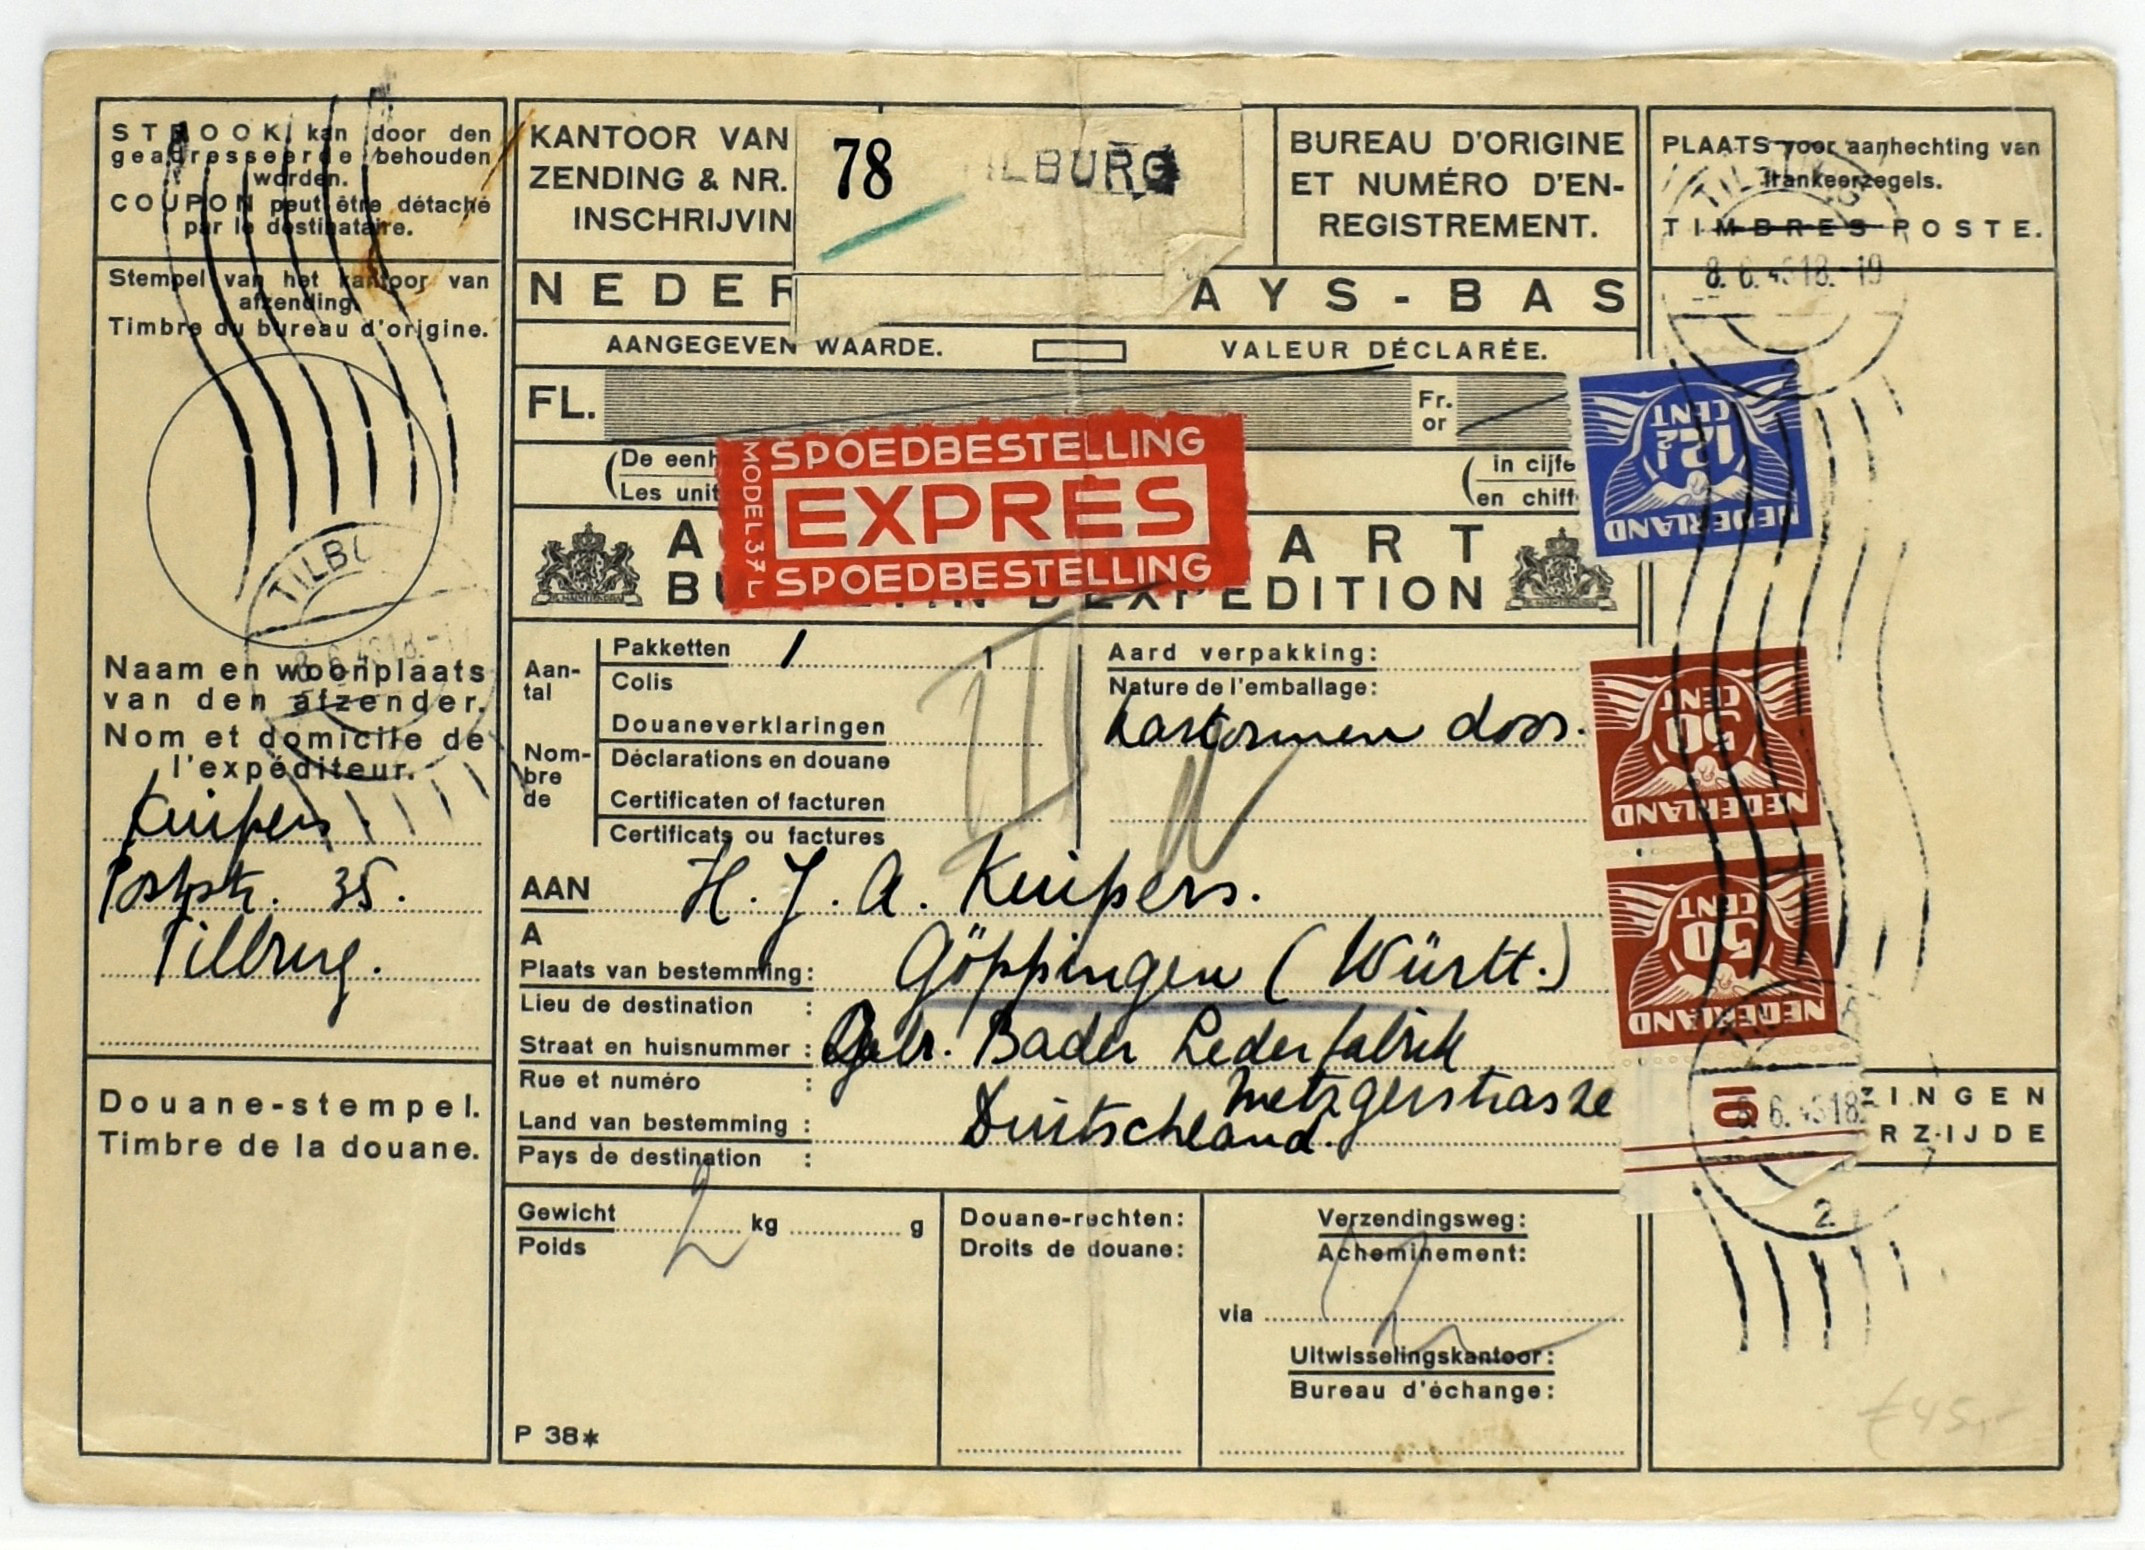 STROOK kan door den
geadresseerde behouden
worden.
COUPON peut être détaché
par le destinataire.
Stempel van het kantoor van
afzending.
Timbre du bureau d'origine.
TILBU
8. 6. 43 18.-19
Naam en woonplaats
van den afzender.
Nom et domicile de
l'expéditeur.
Kuipers
Poststr. 35.
Tilburg.
Douane-stempel.
Timbre de la douane.
KANTOOR VAN
ZENDING & NR.
INSCHRIJVIN
78
ILBURG
BUREAU D'ORIGINE
ET NUMÉRO D'EN-
REGISTREMENT.
NEDER
AYS-BAS
AANGEGEVEN WAARDE.
VALEUR DÉCLARÉE.
FL.
Fr.
or
(De eenh
(Les unit
(in cijfe
(en chiff
MODEL 37 L
SPOEDBESTELLING
EXPRES
SPOEDBESTELLING
A
ART
BU
D'EXPEDITION
Aan-
tal
Nom-
bre
de
Pakketten 1 1
Colis
Douaneverklaringen
Déclarations en douane
Certificaten of facturen
Certificats ou factures
Aard verpakking:
Nature de l'emballage:
kartonnen doos.
AAN H. J. A. Kuipers.
A
Plaats van bestemming: Göppingen (Württ.)
Lieu de destination :
Straat en huisnummer : Gebr. Bader Lederfabrik
Rue et numéro :
Metzgerstrasze
Land van bestemming : Duitschland.
Pays de destination :
Gewicht 2 kg g
Poids
P 38*
Douane-rechten:
Droits de douane:
Verzendingsweg:
Acheminement:
via
Uitwisselingskantoor:
Bureau d'échange:
PLAATS voor aanhechting van
frankeerzegels.
TIMBRES-POSTE.
8. 6. 43 18.-19
12½
CENT
NEDERLAND
50
CENT
NEDERLAND
50
CENT
NEDERLAND
10
8. 6. 43 18.
2
ZINGEN
RZIJDE
€ 45,-